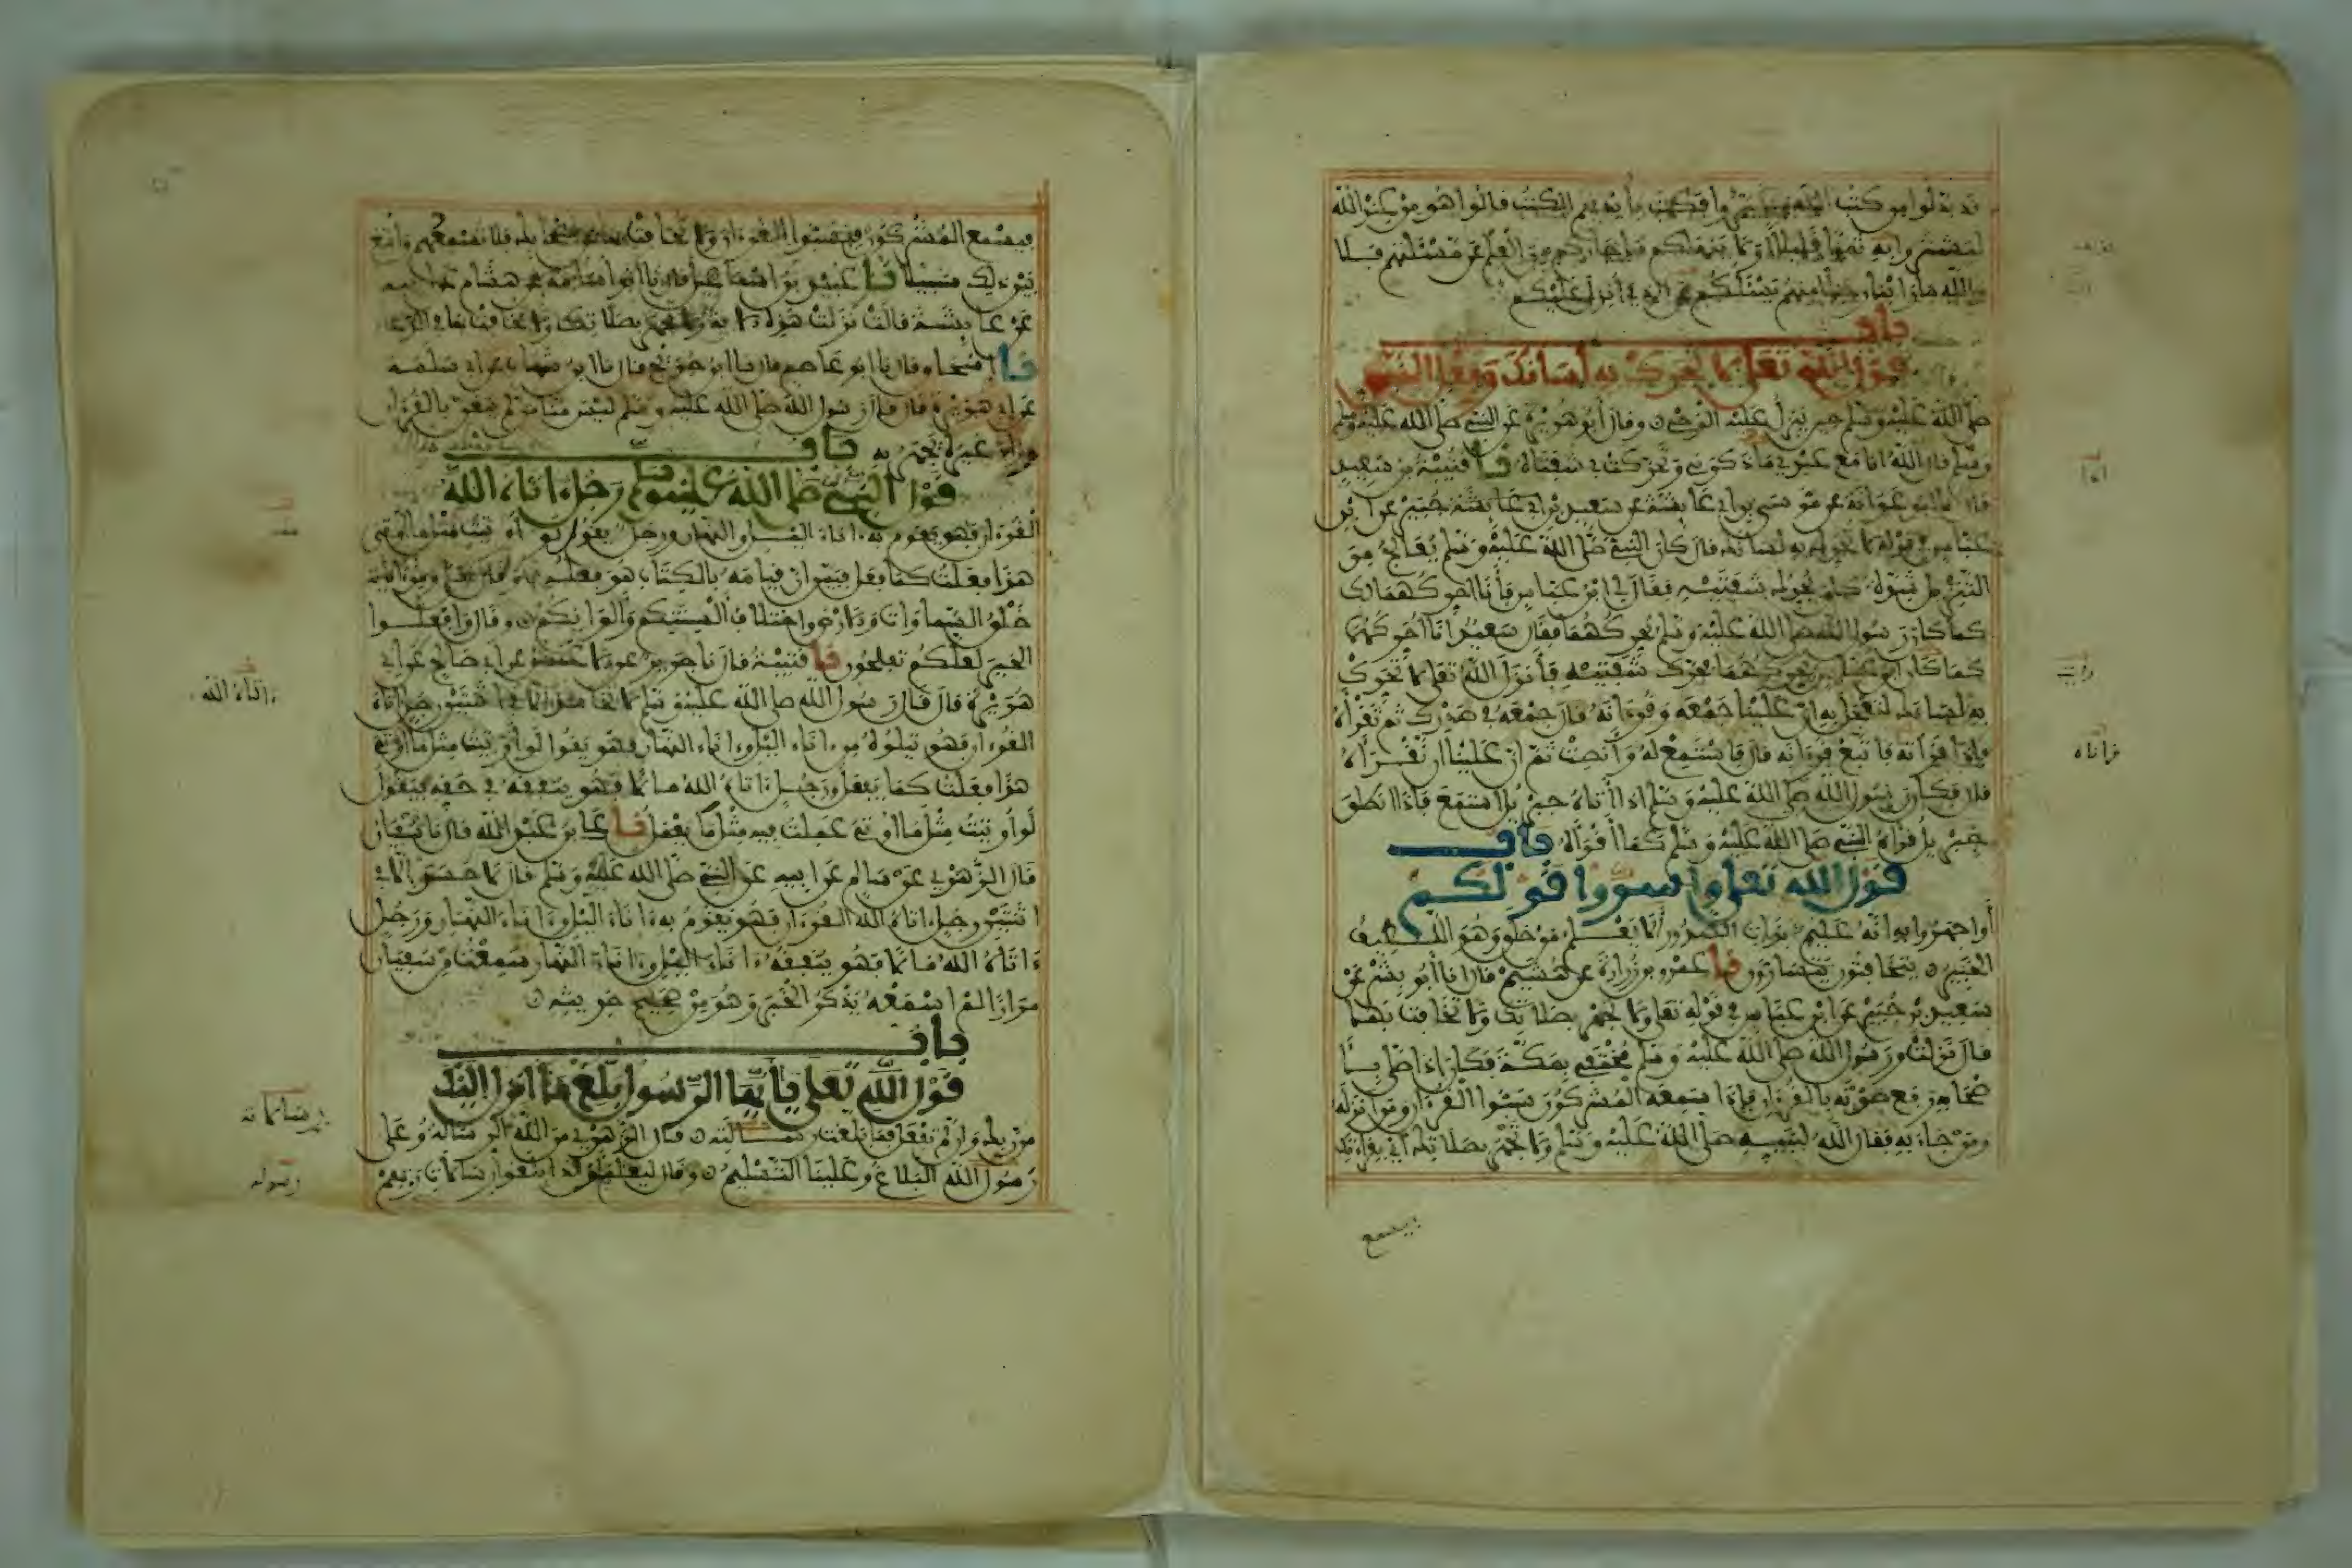 قد بدلوا من كتب الله وغيروا فكتبوا بأيديهم الكتب قالوا هو من عند الله
ليشتروا به ثمنا قليلا أو لا ينهاكم ما جاءكم من العلم عن مسئلتهم فلا
والله ما رأينا رجلا منهم يسئلكم عن الذي أنزل عليكم
باب
قول الله تعلى لا تحرك به لسانك وفعل النبي
صلى الله عليه وسلم حين ينزل عليه الوحي وقال أبو هريرة عن النبي صلى الله عليه وسلم
قال الله أنا مع عبدي ما ذكرني وتحركت بي شفتاه نا قتيبة بن سعيد
قال نا أبو عوانة عن موسى بن أبي عايشة عن سعيد بن جبير عن ابن
عباس في قوله لا تحرك به لسانك قال كان النبي صلى الله عليه وسلم يعالج من
التنزيل شدة كان يحرك شفتيه فقال لي ابن عباس فأنا أحركهما لك
كما كان رسول الله صلى الله عليه وسلم يحركهما فقال سعيد أنا أحركهما
كما كان ابن عباس يحركهما فحرك شفتيه فأنزل الله تعلى لا تحرك
به لسانك لتعجل به إن علينا جمعه وقرءانه قال جمعه في صدرك ثم تقرأه
فإذا قرأنه فاتبع قرءانه قال فاستمع له وأنصت ثم إن علينا أن تقرأه
قال فكان رسول الله صلى الله عليه وسلم إذا أتاه جبريل استمع فإذا انطلق
جبريل قرأه النبي صلى الله عليه وسلم كما أقرأه باب
قول الله تعلى وأسروا قولكم
أو اجهروا به إنه عليم بذات الصدور ألا يعلم من خلق وهو اللطيف
الخبير يتخافتون يتسارون نا عمرو بن زرارة عن هشيم قال نا أبو بشر عن
سعيد بن جبير عن ابن عباس في قوله تعلى ولا تجهر بصلاتك ولا تخافت بها
قال نزلت ورسول الله صلى الله عليه وسلم مختفي بمكة فكان إذا صلى
بأصحابه رفع صوته بالقرءان فإذا سمعه المشركون سبوا القرءان ومن أنزله
ومن جاء به فقال الله لنبيه صلى الله عليه وسلم ولا تجهر بصلاتك أي بقراءتك
فيسمع
فيسمع المشركون فيسبوا القرءان ولا تخافت بها عن أصحابك فلا تسمعهم وابتغ
بين ذلك سبيلا نا عبيد بن إسماعيل قال نا أبو أسامة عن هشام عن أبيه
عن عايشة قالت نزلت هذه الآية ولا تجهر بصلاتك ولا تخافت بها في الدعاء
نا إسحاق قال نا أبو عاصم قال نا ابن جريج قال نا ابن شهاب عن أبي سلمة
عن أبي هريرة قال قال رسول الله صلى الله عليه وسلم ليس منا من لم يتغن بالقرءان
وزاد غيره يجهر به باب
قول النبي صلى الله عليه وسلم رجل ءاتاه الله
القرءان فهو يقوم به ءاناء الليل والنهار ورجل يقول لو أوتيت مثل ما أوتي
هذا فعلت كما يفعل فبين أن قيامه بالكتاب هو فعله وقال ومن ءاياته
خلق السماوات والارض واختلاف ألسنتكم وألوانكم وقال وافعلوا
الخير لعلكم تفلحون نا قتيبة قال نا جرير عن الاعمش عن أبي صالح عن أبي
هريرة قال قال رسول الله صلى الله عليه وسلم لا تحاسد إلا في اثنتين رجل ءاتاه
القرءان فهو يتلوه من ءاناء الليل وءاناء النهار فهو يقول لو أوتيت مثل ما أوتي
هذا فعلت كما يفعل ورجل ءاتاه الله مالا فهو ينفقه في حقه فيقول
لو أوتيت مثل ما أوتي عملت فيه مثل ما يعمل نا علي بن عبد الله قال نا سفيان
قال الزهري عن سالم عن أبيه عن النبي صلى الله عليه وسلم قال لا حسد إلا في
اثنتين رجل ءاتاه الله القرءان فهو يقوم به ءاناء الليل وءاناء النهار ورجل
ءاتاه الله مالا فهو ينفقه ءاناء الليل وءاناء النهار سمعت من سفيان
مرارا لم أسمعه يذكر الخبر وهو من صحيح حديثه
باب
قول الله تعلى يا أيها الرسول بلغ ما أنزل إليك
من ربك وإن لم تفعل فما بلغت رسالته وقال الزهري من الله الرسالة وعلى
رسول الله البلاغ وعلينا التسليم وقال ليعلم أن قد أبلغوا رسالات ربهم
ءاتاه الله
رسالاته
رسوله